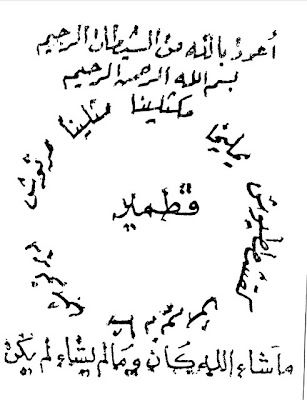 أعوذ بالله من الشيطان الرجيم
بسم الله الرحمن الرحيم
يمليخا
مكثلينا
مثلينا
مرنوش
قطمير
ماشاء الله كان ومالم يشاء لم يكن